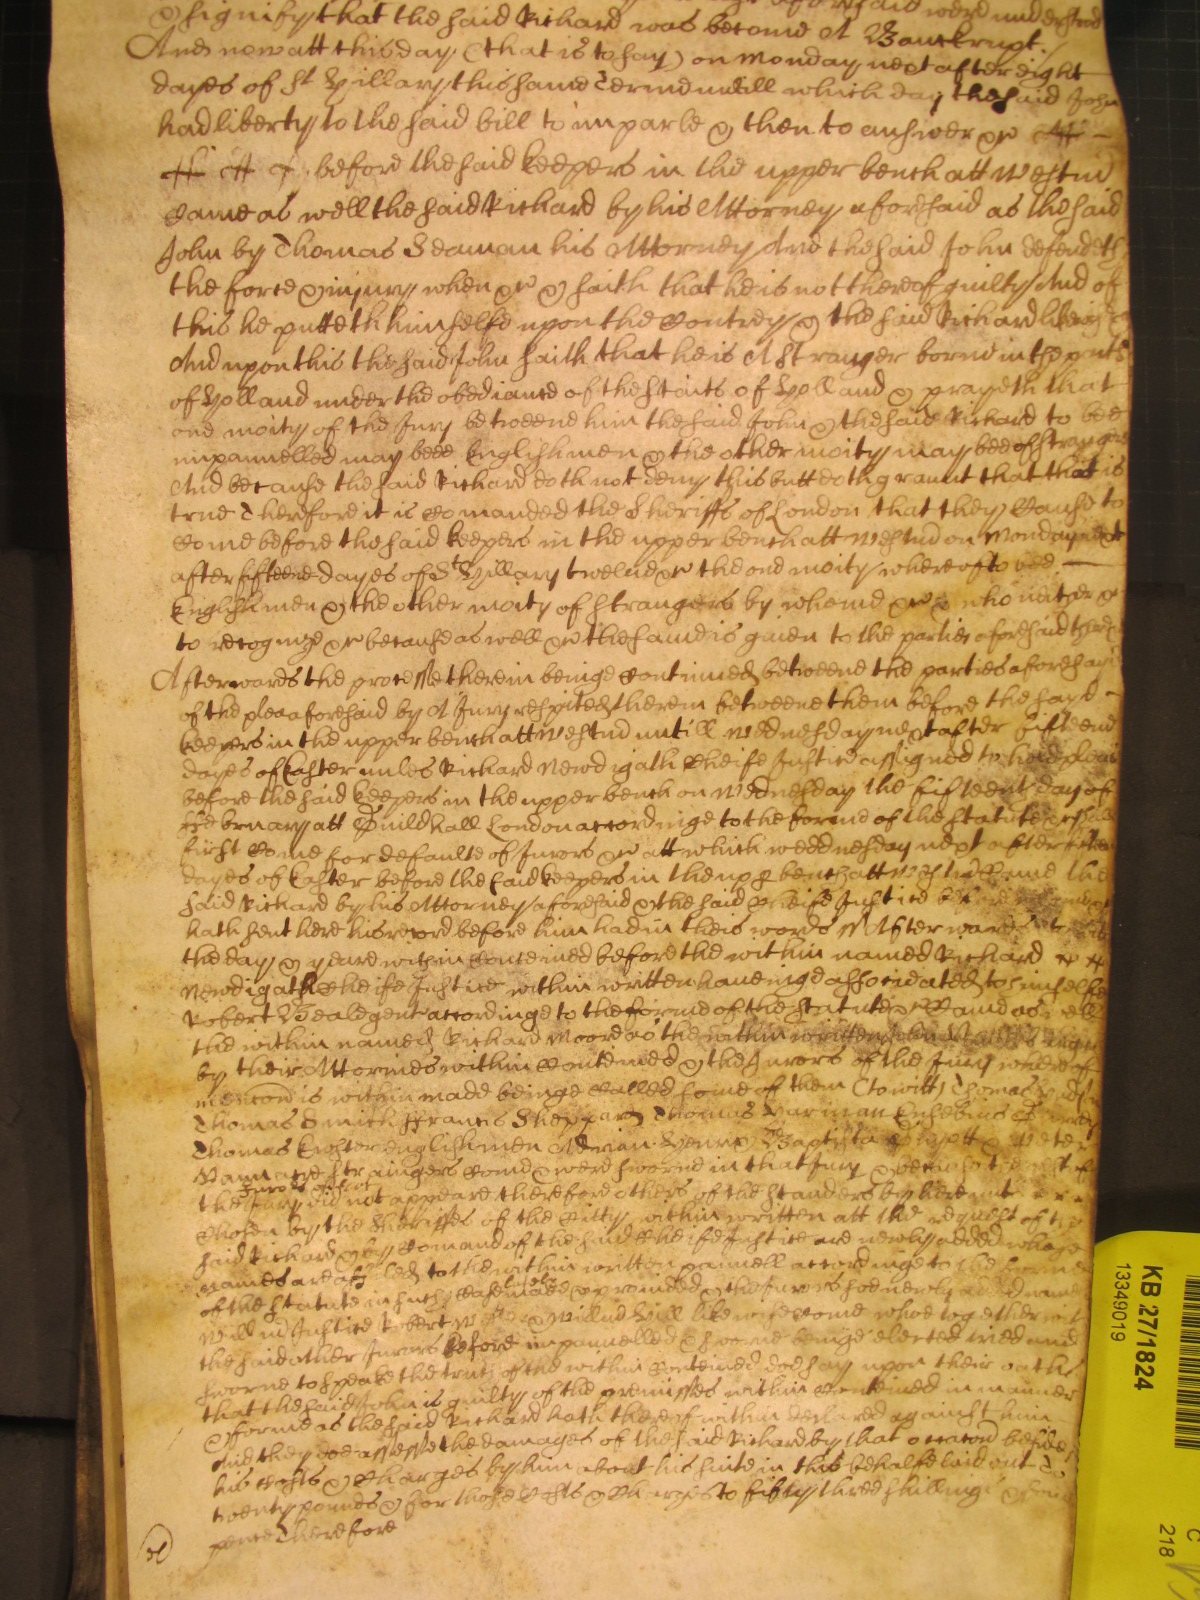 aforesaid were understood
& signify that the said Richard was become A Banckrupt./
And now att this day (that is to say) on Monday next after eight
dayes of St Hillary this same Terme untill which day the said John
had liberty to the said bill to imparle & then to answer &c
before the said keepers in the upper bench att Westmr
Came as well the said Richard by his Attorney aforesaid as the said
John by Thomas Seaman his Attorney And the said John defendeth
the force & injury when &c & saith that he is not thereof guilty And of
this he putteth himselfe upon the Contrey & the said Richard likewise
And upon this the said John saith that he is A Stranger borne in the parts
of Holland under the obediance of the Staits of Holland & prayeth that
one moity of the Jury betweene him the said John & the said Richard to bee
impannelled may beee Englishmen & the other moity may bee of strangers
And because the said Richard doth not deny this butt doth graunt that that is
true Therefore it is Comanded the Sheriffs of London that they Cause to
Come before the said keepers in the upper bench att Westmr on Monday next
after fifteene dayes of St Hillary twelve &c the one moity whereof to bee
Englishmen & the other moity of Strangers by whome &c & who neither &c
to recognize &c because as well &c the same is given to the parties aforesaid there
Afterwards the processe therein beinge Continued betweene the parties aforesayd
of the plea aforesaid by A Jury respited therein betweene them before the sayd
keepers in the upper bench att Westmr untill Wednesday next after fifteene
dayes of Easter unles Richard Newdigath Cheife Justice assigned to hold pleas
before the said keepers in the upper bench on Wednesday the fifteenth day of
ffebruary att Guildhall London accordinge to the forme of the statute &c shall
first Come for defaulte of Jurors &c att which Weddnesday next after fifteene
dayes of Easter before the said keepers in the upper bench att Westmr Came the
said Richard by his Attorney aforesaid & the said Cheife Justice before whome
hath sent here his record before him had in theis words ss Afterwards
the day & yeare within Conteined before the within named Richard
Newdigath Cheife Justice within written haveinge associated to himselfe
Robert Beale gent accordinge to the forme of the statute &c Came as well
the within named Richard Moore as the within written John
by their Attornies within Conteined & the Jurors of the Jury whereof
mencon is within made beinge Called some of them (to witt) Thomas
Thomas Smith ffrancis Sheppard Thomas Yarman Eusebius
Thomas Englishmen Adrian Baptista Peter
Strangers Come & were sworne in that Jury & because the rest of
the Jurors of that Jury did not appeare therefore others of the standers by hereunto
Chosen by the Sheriffes of the Citty within written att the request of the
said Richard & by Comand of the said Cheife Justice are newly added whose
names are affiled to the within written pannell accordinge to the forme
of the statute in such Case lately made & provided & the Jurors soe newly added namely
Willm Justice Robert & Willm Hill likewise Come whoe together with
the said other Jurors before impannelled & sworne beinge elected tried and
sworne to speake the truth of the within Conteined doe say upon their oathes
that the said John is guilty of the premisses within Conteined in manner
& forme as the said Richard hath thereof within declared against him
And they doe assesse the damages of the said Richard by that occacon beside
his Costs & Charges by him about his suite in this behalfe laid out to
twenty pounds & for those Costs & Charges to fifty three shillings &
pence Therefore
KB 27/1824
13349019
218